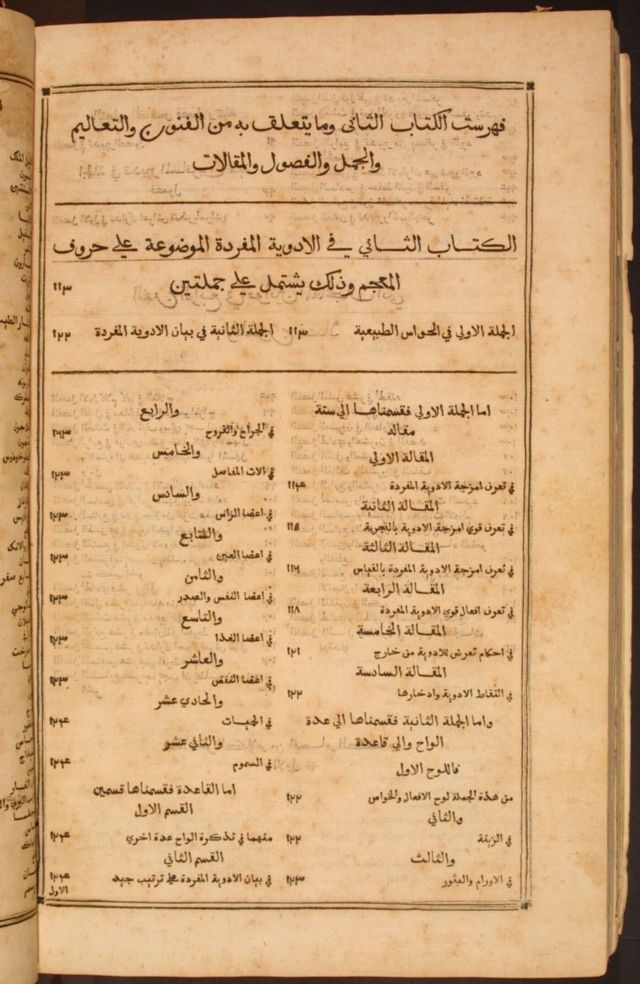 فهرست الكتاب الثاني وما يتعلق به من الفنون والتعاليم
والجمل والفصول والمقالات
الكتاب الثاني في الادوية المفردة الموضوعة علي حروف
المعجم وذلك يشتمل علي جملتين ١١٣
الجملة الاولي في الحواس الطبيعية ١١٣
الجملة الثانية في بيان الادوية المفردة ١٢٢
اما الجملة الاولي فقسمناها الي ستة
مقاله
المقالة الاولي
في تعرف امزجة الادوية المفردة ١١٤
المقالة الثانية
في تعرف قوي امزجة الادوية بالتجربة ١١٥
المقالة الثالثة
في تعرف امزجة الادوية المفردة بالقياس ١١٦
المقالة الرابعة
في تعرف افعال قوي الادوية المفردة ١١٨
المقالة الخامسة
في احكام تعرض للادوية من خارج ١٢١
المقالة السادسة
في التقاط الادوية وادخارها ١٢٢
واما الجملة الثانية فقسمناها الي عدة
الواح والي قاعدة
فاللوح الاول
من هذة الجملة لوح الافعال والخواص ١٢٢
والثاني
في الزينة ١٢٢
والثالث
في الاورام والبثور ١٢٣
والرابع
في الجراح والقروح ١٢٣
والخامس
في الات المفاصل ١٢٣
والسادس
في اعضا الراس ١٢٣
والسابع
في اعضا العين ١٢٣
والثامن
في اعضا النفس والصدر ١٢٣
والتاسع
في اعضا الغذا ١٢٣
والعاشر
في اعضا النفض ١٢٣
والحادي عشر
في الحميات ١٢٤
والثاني عشر
في السموم ١٢٤
اما القاعدة فقسمناها قسمين
القسم الاول
منهما في تذكرة الواح عدة اخري ١٢٤
القسم الثاني
في بيان الادوية المفردة علي ترتيب جيد ١٢٤
الاول